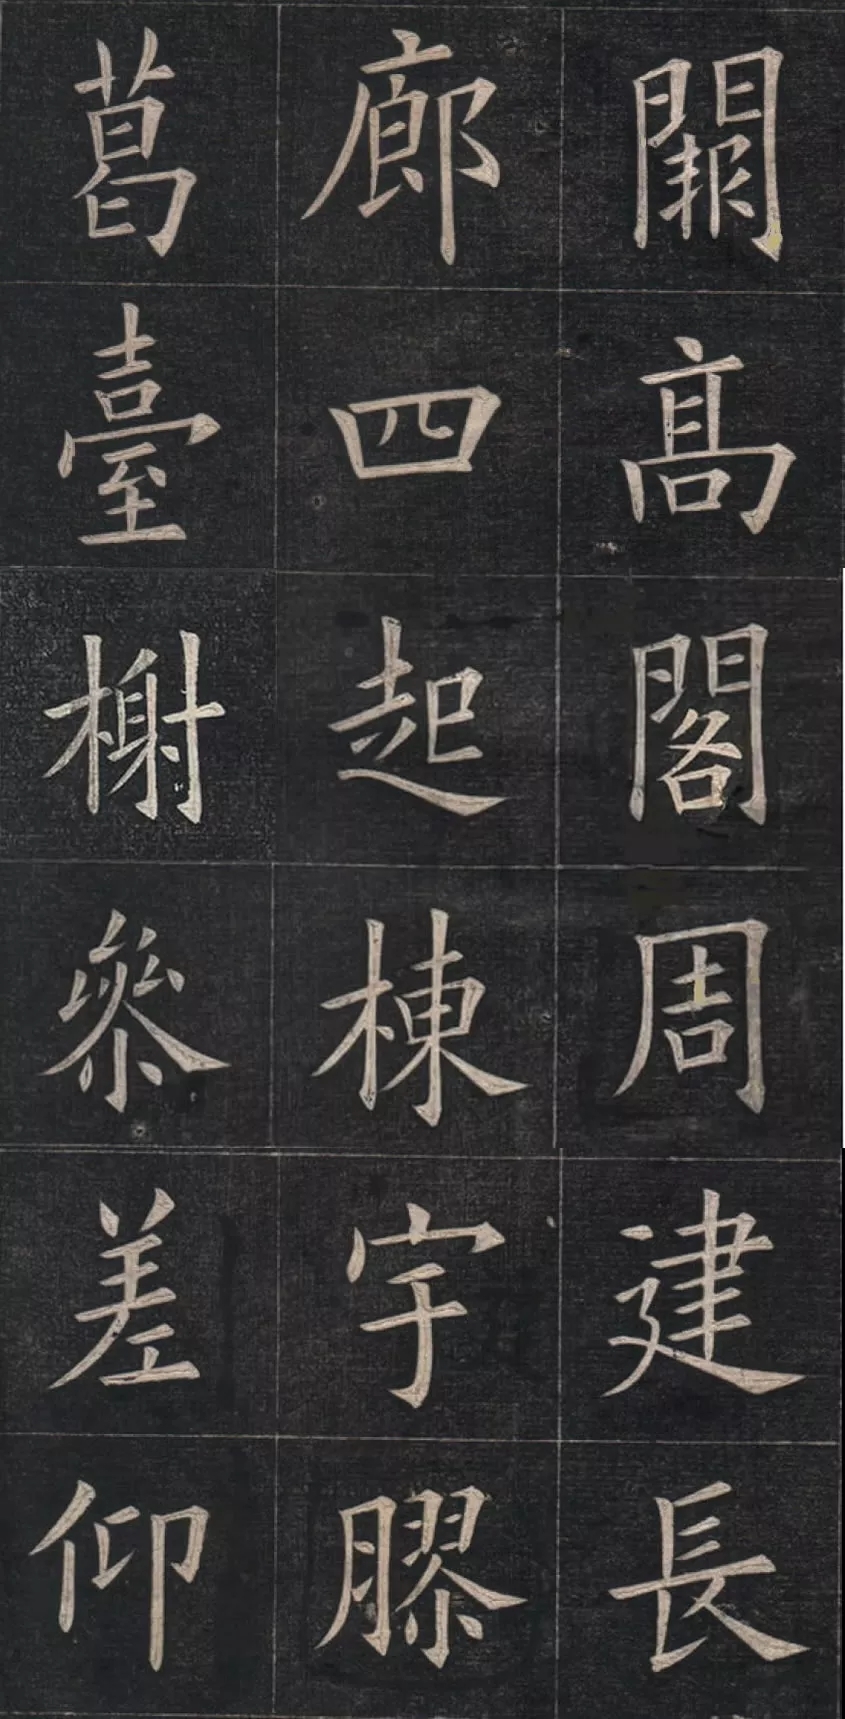 闕髙閣周建長
廊四起棟宇膠
葛臺榭參差仰